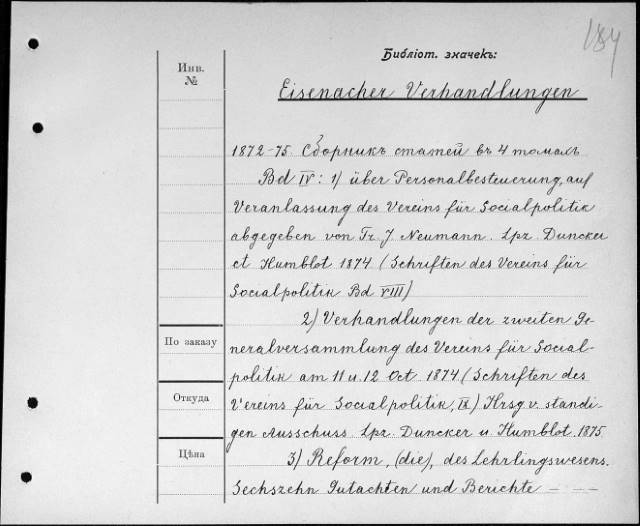 184
Библіот. значекъ:
Инв.
№
Eisenacher Verhandlungen
1872-75. Сборникъ статей въ 4 томахъ
Bd IV: 1) über Personalbesteuerung, auf
Veranlassung des Vereins für Socialpolitik
abgegeben von Fr. J. Neumann. Lpz. Duncker
et Humblot 1874 (Schriften des Vereins für
Socialpolitik Bd VIII)
2) Verhandlungen der zweiten Ge-
neralversammlung des Vereins für Social-
politik am 11 u. 12 Oct. 1874 (Schriften des
Vereins für Socialpolitik, IX) Hrsg v. standi-
gen Ausschuss. Lpz. Duncker u. Humblot. 1875
3) Reform, (die), des Lehrlingswesens.
Sechszehn Gutachten und Berichte — —
По заказу
Откуда
Цѣна